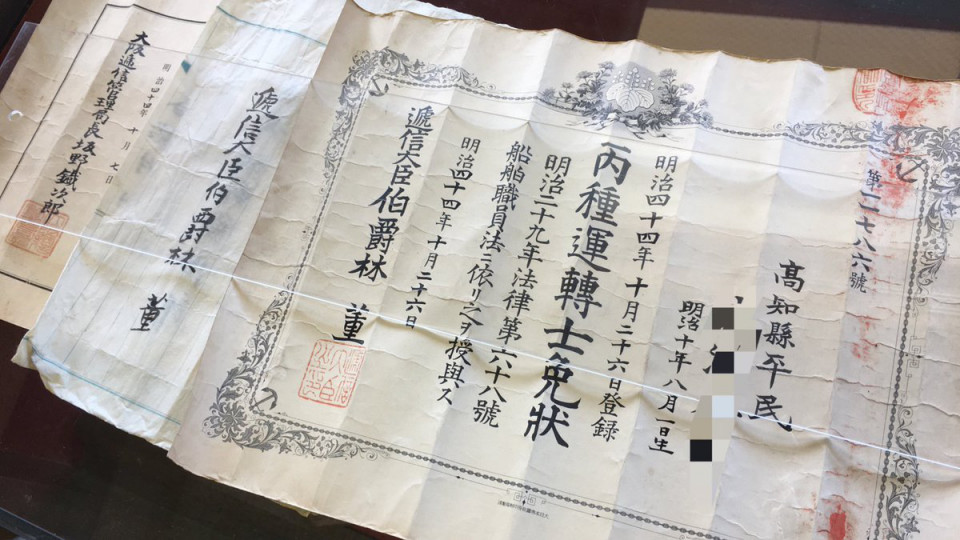 第二七八六號
高知縣平民
明治十年八月一日生
明治四十四年十月二十六日登録
丙種運轉士免狀
明治二十九年法律第六十八號
船舶職員法ニ依リ之ヲ授與ス
明治四十四年十月二十六日
遞信大臣伯爵林 董
遞信大臣伯爵林 董
明治四十四年十月七日
大阪遞信管理局長坂野鐵次郎